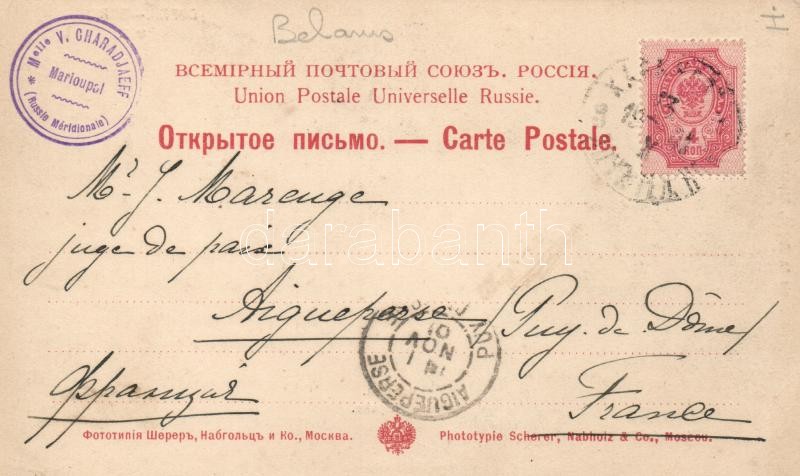 Belarus
H
Melle V. CHARADJAEFF
Marioupol
(Russie Méridionale)
ВСЕМІРНЫЙ ПОЧТОВЫЙ СОЮЗЪ. РОССІЯ.
Union Postale Universelle Russie.
Открытое письмо. — Carte Postale.
Mr J. Marenge
juge de paix
Aigueperse (Puy-de-Dôme)
Франція
France
AIGUEPERSE
14
NOV
01
PUY DE DÔME
darabanth
Фототипія Шереръ, Набгольцъ и Ко., Москва.
Phototypie Scherer, Nabholz & Co., Moscou.